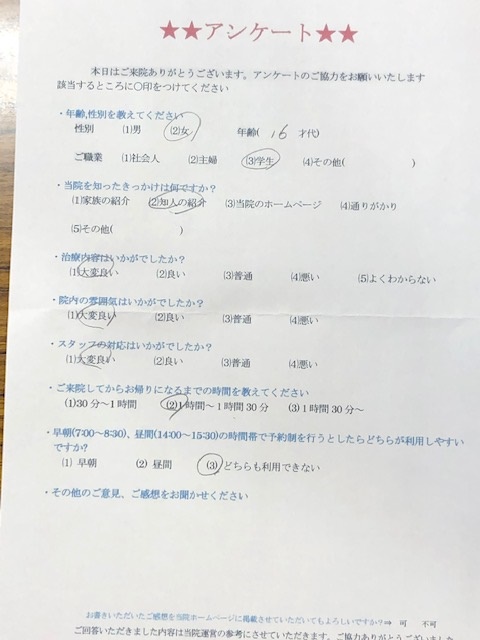 ★★アンケート★★
本日はご来院ありがとうございます。アンケートのご協力をお願いいたします
該当するところに○印をつけてください
・年齢,性別を教えてください
性別 (1)男 (2)女 年齢( 16 才代)
ご職業 (1)社会人 (2)主婦 (3)学生 (4)その他( )
・当院を知ったきっかけは何ですか?
(1)家族の紹介 (2)知人の紹介 (3)当院のホームページ (4)通りがかり
(5)その他( )
・治療内容はいかがでしたか?
(1)大変良い (2)良い (3)普通 (4)悪い (5)よくわからない
・院内の雰囲気はいかがでしたか?
(1)大変良い (2)良い (3)普通 (4)悪い
・スタッフの対応はいかがでしたか?
(1)大変良い (2)良い (3)普通 (4)悪い
・ご来院してからお帰りになるまでの時間を教えてください
(1)30分～1時間 (2)1時間～1時間30分 (3)1時間30分～
・早朝(7:00～8:30)、昼間(14:00～15:30)の時間帯で予約制を行うとしたらどちらが利用しやすい
ですか?
(1) 早朝 (2) 昼間 (3)どちらも利用できない
・その他のご意見、ご感想をお聞かせください
お書きいただいたご感想を当院ホームページに掲載させていただいてもよろしいですか?⇒ 可 不可
ご回答いただきました内容は当院運営の参考にさせていただきます。ご協力ありがとうございました